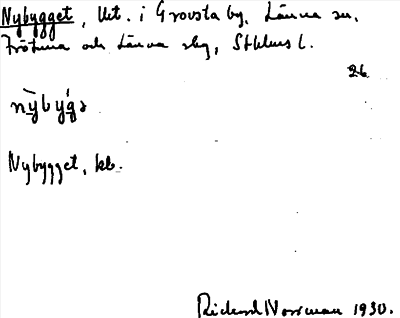 Nybygget, lht. i Grovsta by, Länna sn,
Frötuna och Länna skg, Sthlms l.
26
nỳbýgə
Nybygget, kb.
Rickard Norrman 1930.